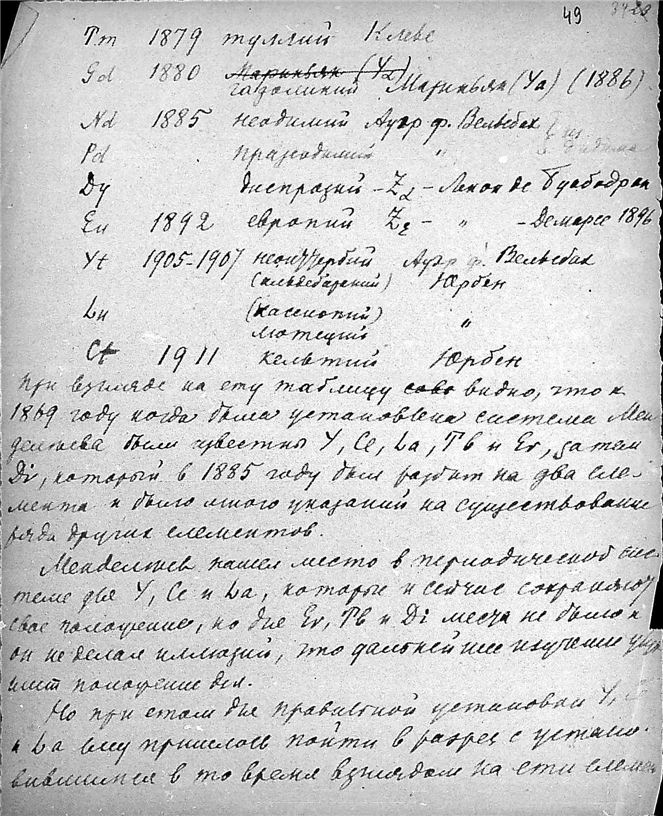 49
Tm 1879 туллий Клеве
Gd 1880 Мариньяк (Yα)
гадолиний Мариньяк (Yα) (1886)
Nd 1885 неодимий Ауэр ф. Вельсбах } из
Pd празеодимий " } дидима
Dy диспразий – Zα – Лекок де Буабодран
Eu 1892 европий Zε – " – Демарсе 1896
Yt 1905-1907 неоиттербий Ауэр ф. Вельсбах
(альдебараний) Юрбен
Lu (кассиопий)
лютеций "
Ct 1911 кельтий Юрбен
При взгляде на ету таблицу видно, что к
1869 году когда была установлена система Мен
делеева были известны Y, Ce, La, Tb и Er, затем
Di, который в 1885 году был разбит на два еле-
мента и было много указаний на существование
ряда других елементов.
Менделеев нашел место в периодической сис-
теме для Y, Ce и La, которые и сейчас сохраняют
свое положение, но для Er, Tb и Di места не было и
он не делал иллюзий, что дальнейшее изучение
положение дел.
Но при етом для правильной установки Y,
и La ему пришлось пойти в разрез с устано-
вившимся в то время взглядом на ети елемен